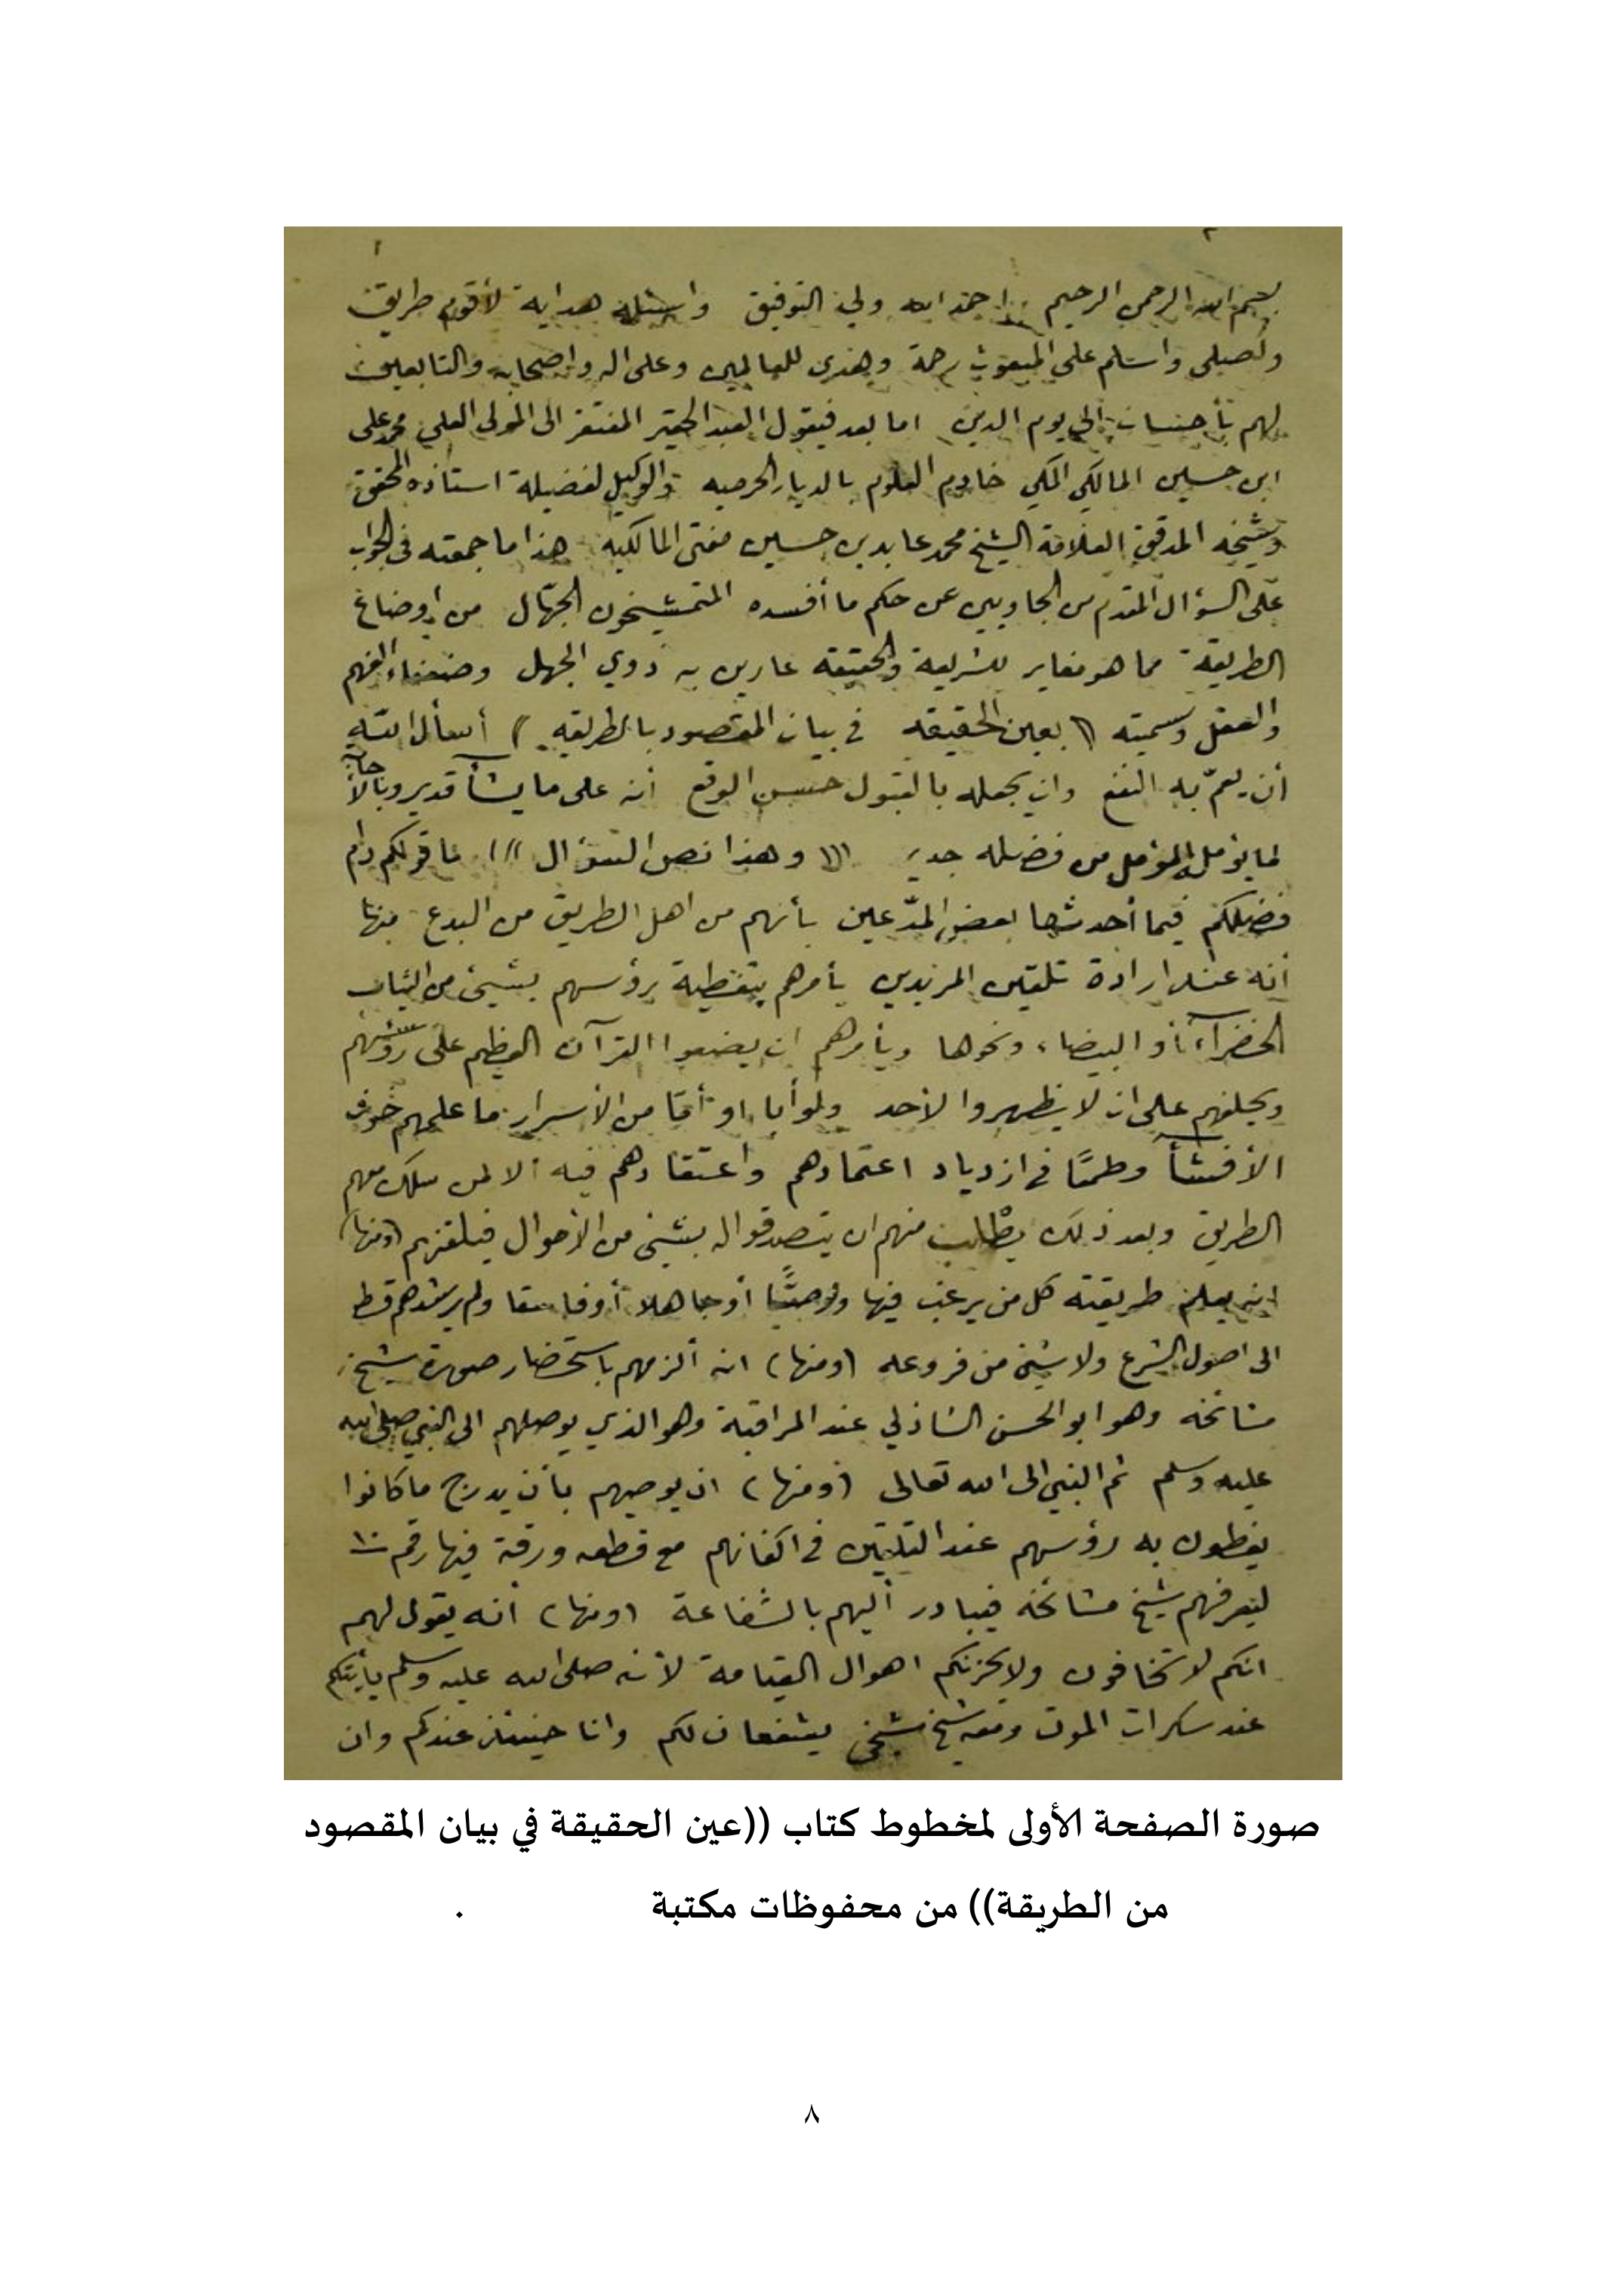 بسم الله الرحمن الرحيم احمد الله ولي التوفيق واسئله هداية لأقوم طريق
واصلي واسلم على المبعوث رحمة وهدى للعالمين وعلى اله واصحابه والتابعين
لهم بأحسان الى يوم الدين اما بعد فيقول العبد الحقير المفتقر الى المولى العلي محمد على
ابن حسين المالكي المكي خادم العلوم بالديار الحرميه والوكيل لفضيلة استاذه المحقق
وشيخه المدقق العلامة الشيخ محمد عابد بن حسين مفتى المالكية هذا ما جمعته فى الجواب
على السؤال المقدم من الجاويين عن حكم ما أفسده المتمشيخون الجهّال من اوضاع
الطريقة مما هو مغاير للشريعة والحقيقه به ذوي الجهل وضعفاء الفهم
والعقل وسميته (( بعين الحقيقه في بيان المقصود بالطريقه )) أسأل الله
أن يعمّ به النفع وان يجعله بالقبول حسن الوقع أنه على ما يشأ قدير وبالأجابة
لما يؤمل المؤمل من فضله جدير ((( وهذا نص السؤال ))) ما قولكم دام
فضلكم فيما أحدثها بعض المدّعين بأنهم من اهل الطريق من البدع منها
أنه عند ارادة تلقين المريدين يأمرهم بتغطية رؤسهم بشيئ من الثياب
الخضرآء أو البيضاء ونحوها ويأمرهم ان يضعوا القرآن العظيم على رؤسهم
ويحلفهم على ان لا يظهروا لأحد ولو أبا او أمّا من الأسرار ما علمهم خوف
الأفشأ وطمعًا في ازدياد اعتمادهم واعتقادهم فيه الا لمن سلك معهم
الطريق وبعد ذلك يطلب منهم ان يتصدقوا له بشئ من الأموال فيلقنهم (ومنها)
انه يعلم طريقته كل من يرغب فيها ولو صبيًّا أو جاهلا أو فاسقا ولم يرشدهم قط
الى اصول الشرع ولا شئ من فروعه (ومنها) انه ألزمهم باستحضار صورة شيخ
مشائخه وهو ابو الحسن الشاذلي عند المراقبة وهو الذي يوصلهم الى النبي صلى الله
عليه وسلم ثم النبي الى الله تعالى (ومنها) ان يوصيهم بأن يدرج ما كانوا
يغطون به رؤسهم عند التلقين في اكفانهم مع قطعه ورقة فيها رقم ١٠
ليعرفهم شيخ مشائخه فيبادر أليهم بالشفاعة (ومنها) أنه يقول لهم
انكم لا تخافون ولا يحزنكم اهوال القيامة لأنه صلى الله عليه وسلم يأتيكم
عند سكرات الموت ومعه شيخ شيخي يشفعان لكم وانا حينئذ عندكم وان
صورة الصفحة الأولى لمخطوط كتاب ((عين الحقيقة في بيان المقصود
من الطريقة)) من محفوظات مكتبة .
٨